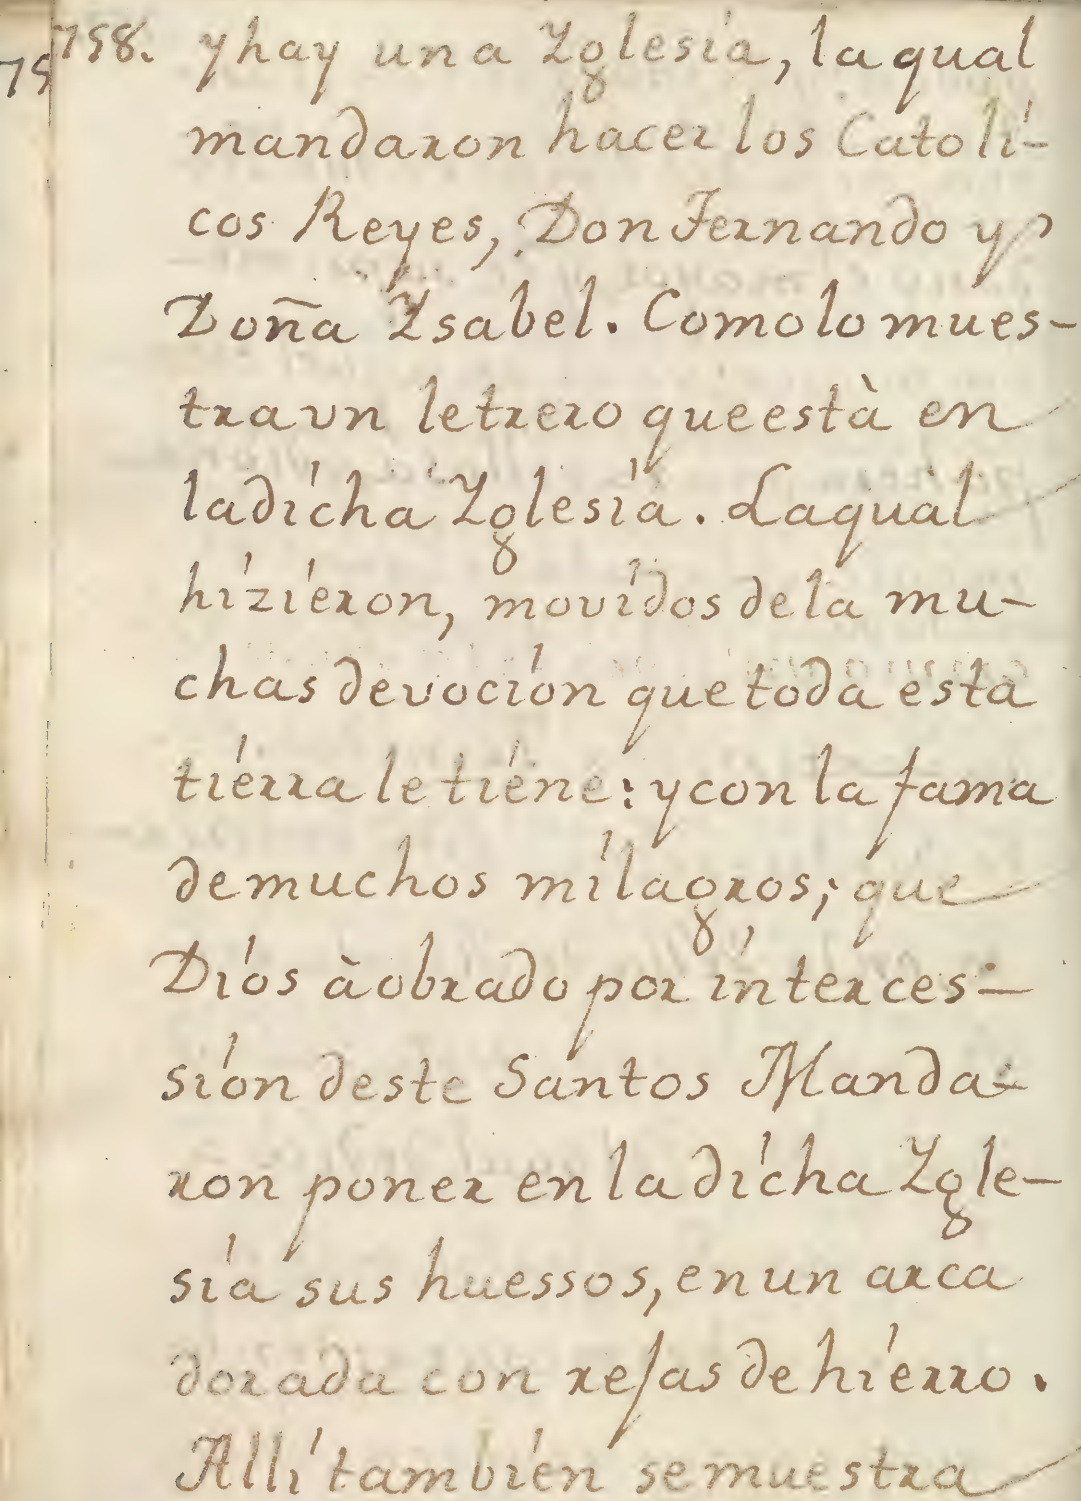 75 758. y hay una Yglesia, la qual
mandaron hacer los Catoli-
cos Reyes, Don Fernando y
Doña Ysabel. Como lo mues-
tra vn letrero que està en
la dicha Yglesia. La qual
hizieron, movidos de la mu-
chas devocion que toda esta
tierra le tiene: y con la fama
de muchos milagros; que
Dios à obrado por interces-
sion deste Santos Manda-
ron poner en la dicha Ygle-
sia sus huessos, en un arca
dorada con rejas de hierro.
Alli tambien se muestra